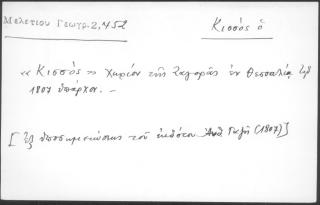 Μελετίου Γεωγρ. 2, 452
Κισσός ὁ
«Κισσός» χωρίον τῆς Ζαγορᾶς ἐν Θεσσαλίᾳ
1807 ὑπάρχον. —
[Ἐξ ὑποσημειώσεως τοῦ ἐκδότου Ἀνθ. Γαζῆ (1807)]